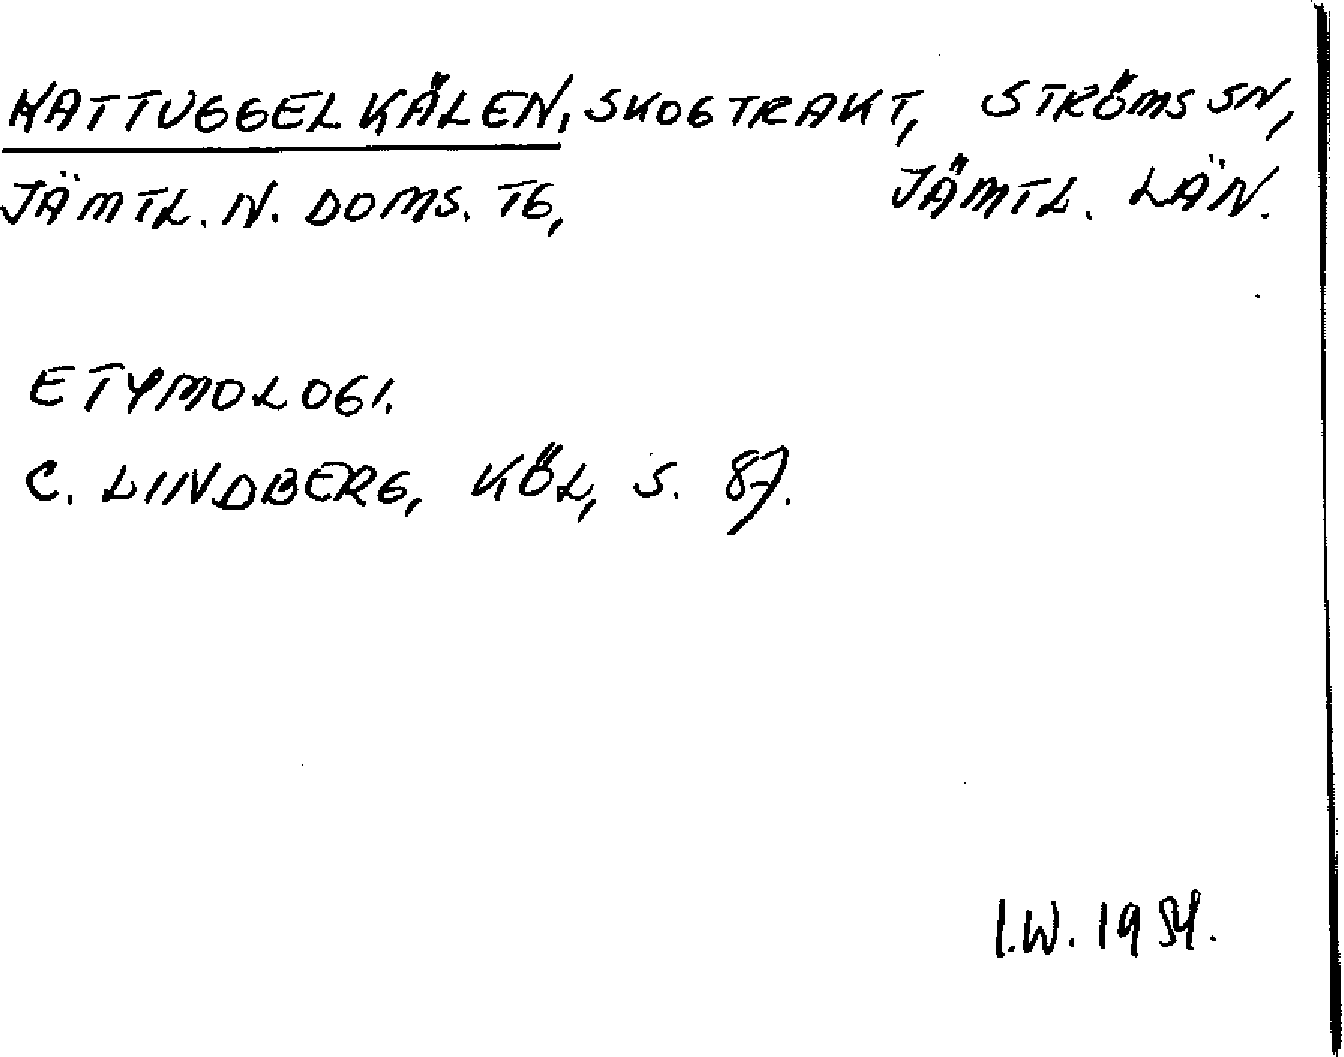 KATTUGGELKÄLEN, SKOGTRAKT, STRÖMS SN,
JÄMTL. N. DOMS. TG, JÄMTL. LÄN.
ETYMOLOGI.
C. LINDBERG, KÖL, S. 87.
I.W. 1984.